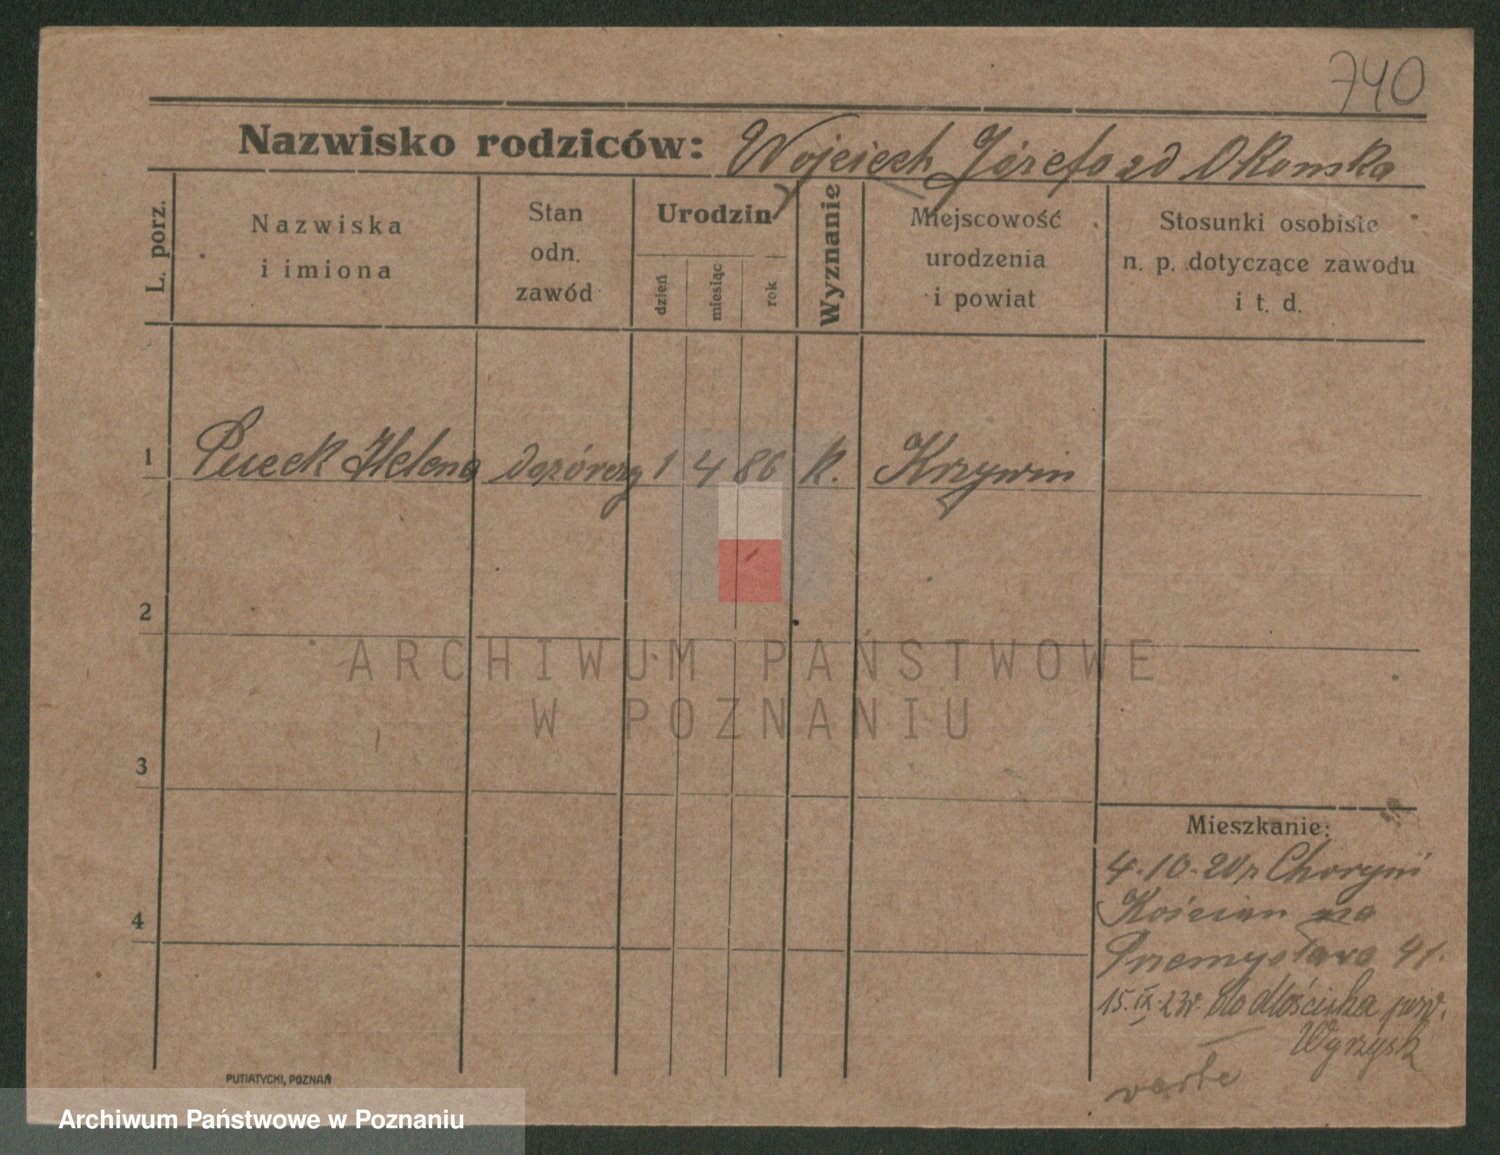 740
Nazwisko rodziców: Wojciech Józefa zd Okonska
L. porz.
Nazwiska
i imiona
Stan
odn.
zawód
Urodzin
dzień
miesiąc
rok
Wyznanie
Miejscowość
urodzenia
i powiat
Stosunki osobiste
n. p. dotyczące zawodu
i t. d.
1 Helena 1 4 86 k. Krzywin
2
3
4
Mieszkanie:
4.10.20 Choryni
Kościan na
Przemysława 41.
15.IX.23r. do pow.
Wyrzysk
PUTIATYCKI, POZNAŃ
ARCHIWUM PAŃSTWOWE
W POZNANIU
Archiwum Państwowe w Poznaniu